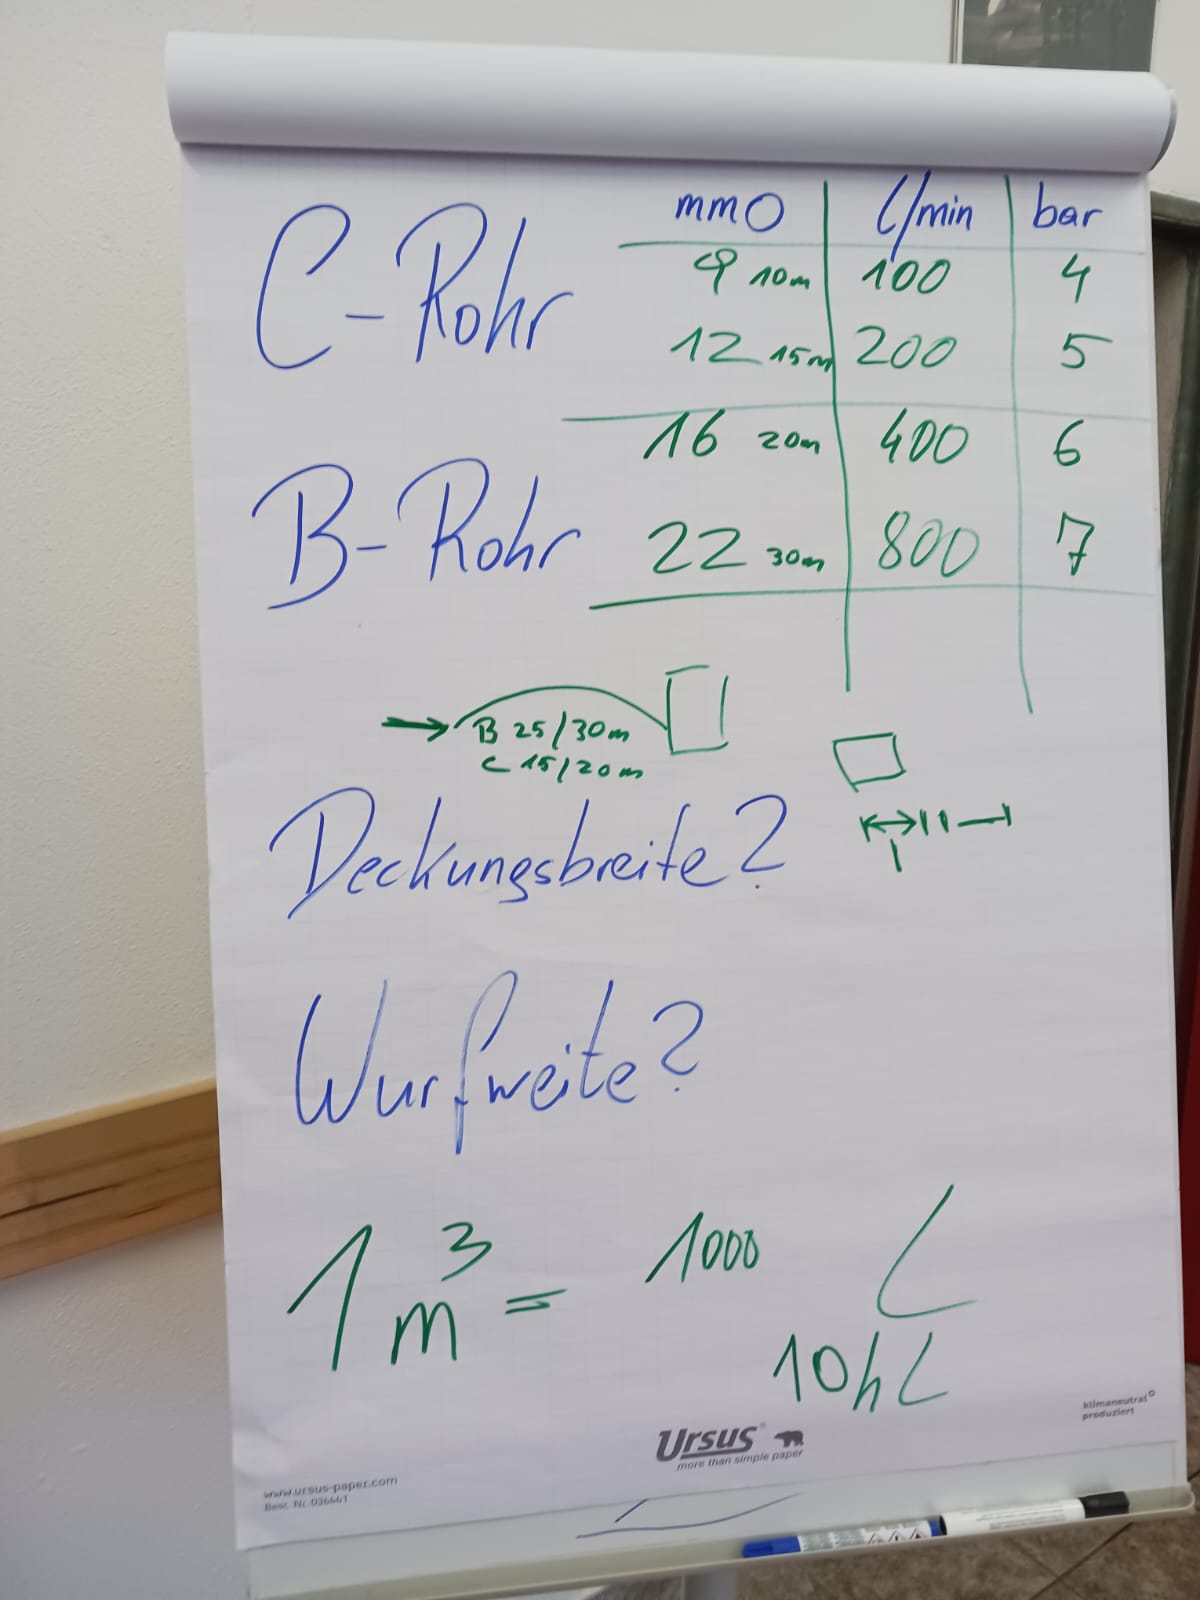 mm O l/min bar
C-Rohr
9 10m 100 4
12 15m 200 5
B-Rohr
16 20m 400 6
22 30m 800 7
B 25/30m
C 15/20m
Deckungsbreite?
Wurfweite?
1m³ = 1000 L
10hL
klimaneutral
produziert
Ursus®
more than simple paper
www.ursus-paper.com
Best. Nr. 036661